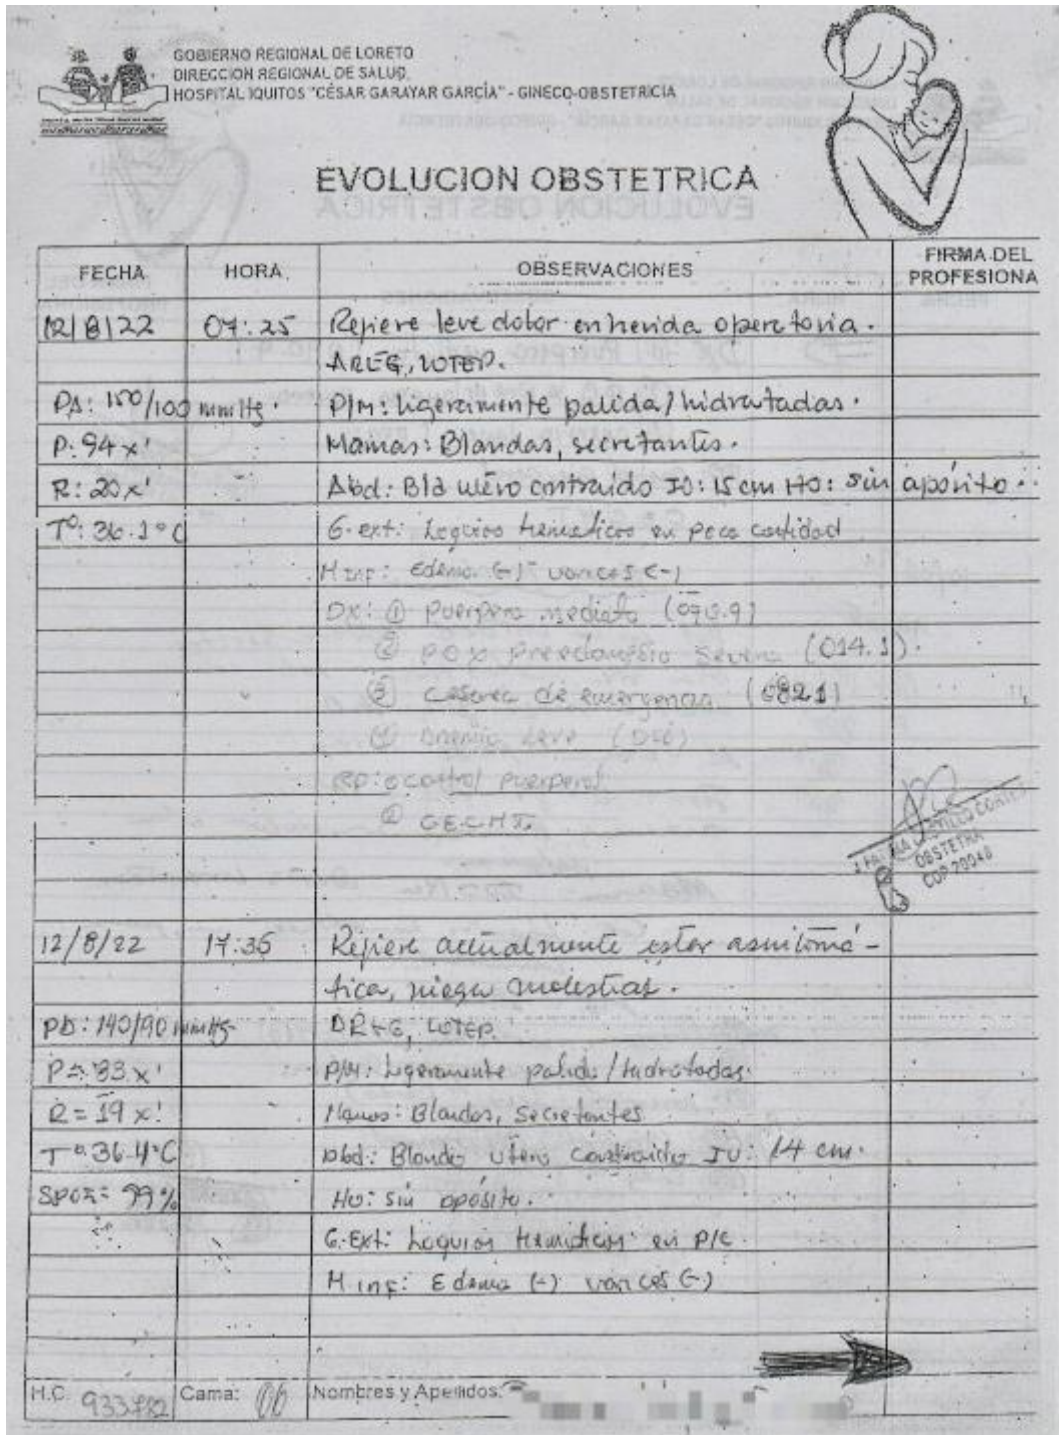 GOBIERNO REGIONAL DE LORETO
DIRECCION REGIONAL DE SALUD
HOSPITAL IQUITOS "CÉSAR GARAYAR GARCÍA" - GINECO-OBSTETRICIA
EVOLUCION OBSTETRICA
FECHA HORA OBSERVACIONES FIRMA DEL PROFESIONA
12/8/22 07:25 Refiere leve dolor en herida operatoria.
AREG, LOTEP.
PA: 150/100 mmHg. P/M: Ligeramente palida / hidratadas.
P: 94 x' Mamas: Blandas, secretantes.
R: 20 x' Abd: B/d utero contraido IU: 15 cm HO: sin apósito.
Tº: 36.1°C G. ext: Loquios hematicos en poca cantidad
M inf: Edema (-) varices (-)
DX: ① Puerpera mediata (O90.9)
② POX Preeclampsia Severa (O14.1).
③ Cesarea de emergencia (O821)
④ Anemia Leve (D50)
control puerperal
②
OBSTETRA
COP 29048
12/8/22 17:35 Refiere actualmente estar asintomá-
tica, niega molestias.
PA: 140/90 mmHg AREG, LOTEP.
P= 83 x' P/M: Ligeramente palida / hidratadas.
R= 19 x' Mamas: Blandas, secretantes
Tº 36.4°C Abd: Blando utero contraido IU: 14 cm.
SPO2= 99% HO: sin apósito.
G. Ext: Loquios hematicos en P/C.
M inf: Edema (-) varices (-)
H.C. 933782 Cama: 06 Nombres y Apellidos: